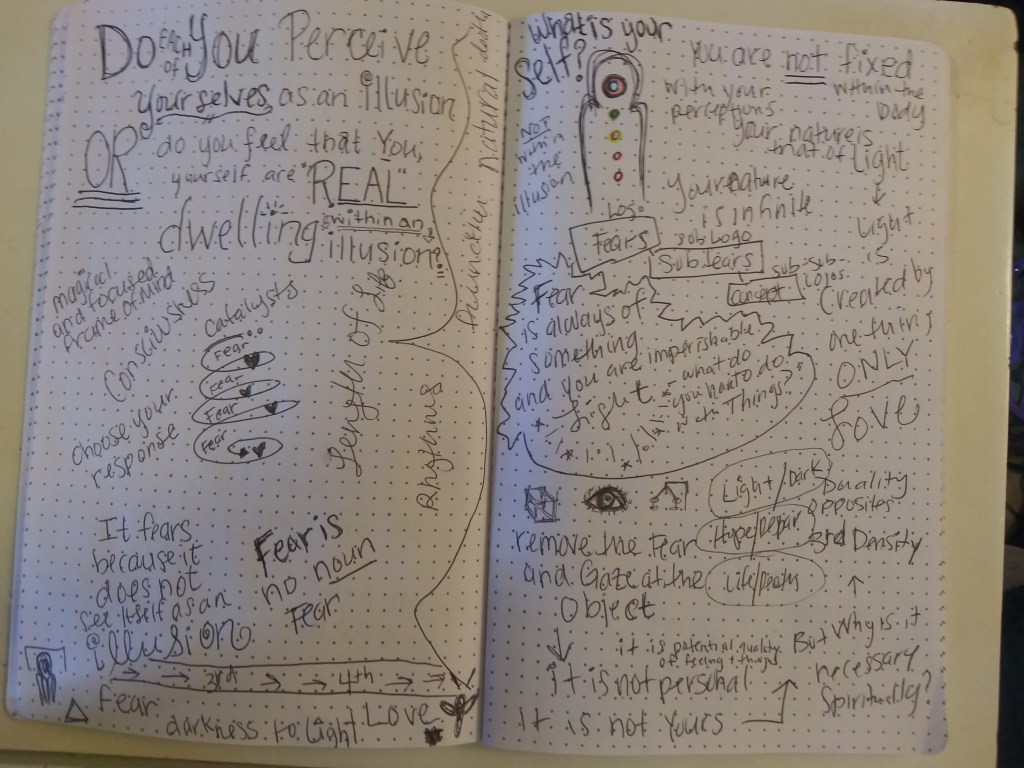 Do EACH of You Perceive
yourselves, as an illusion
OR
do you feel that You,
yourself are "REAL"
dwelling within an
illusion?
magical
and focused
frame of mind
Catalysts
Fear
Fear
Fear
Fear
choose your
response
Length of
Rhythms
Natural
It fears
because it
does not
see itself as an
illusion
Fear is
no noun
Fear
3rd
4th
fear
darkness to Light
Love
What is your
self?
NOT
within
the
illusion
You are not fixed
with your
perceptions
within the
body
Your nature is
that of Light
Your nature
is infinite
Light
is
Created by
ONLY
Love
Logos
Fears
sub Logo
Sub.fears
sub-sub-
Logos
concept
Fear
is always of
something
and you are imperishable
Light
what do
you want to do
with Things?
Light/Dark
Duality
opposites
Hope/Depair
3rd Density
Life/Death
remove the Fear
and Gaze at the
Object
it is potential quality
of feeling + thought
it is not personal
it is not yours
But Why is it
necessary
Spiritually?